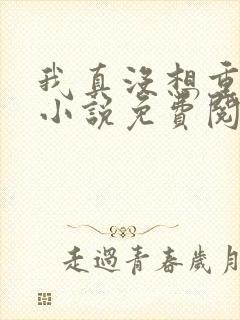 我真没想重
小說免費閱
走過青春歲月